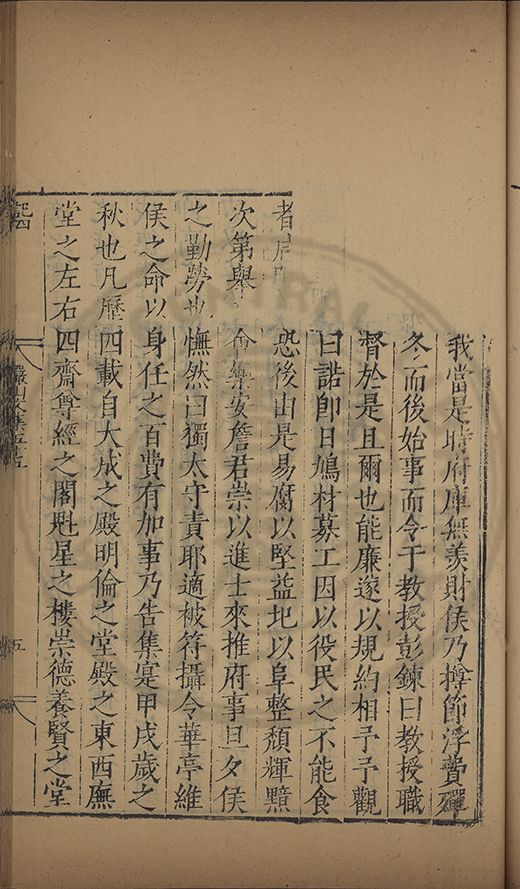 我當是時府庫無羨財侯乃撙節浮費殫
冬而後始事而令于教授彭鍊曰教授職
督於是且爾也能廉遂以規約相予予觀
曰諾即日鳩材募工因以役民之不能食
者
恐後由是易腐以堅益圯以阜整頹輝黯
次第舉
樂安詹君崇以進士來推府事旦夕侯
之勤勞也
憮然曰獨太守責耶適被符攝令華亭維
侯之命以身任之百費有加事乃告集寔甲戌歲之
秋也凡歷四載自大成之殿明倫之堂殿之東西廡
堂之左右四齋尊經之閣魁星之樓崇德養賢之堂
五